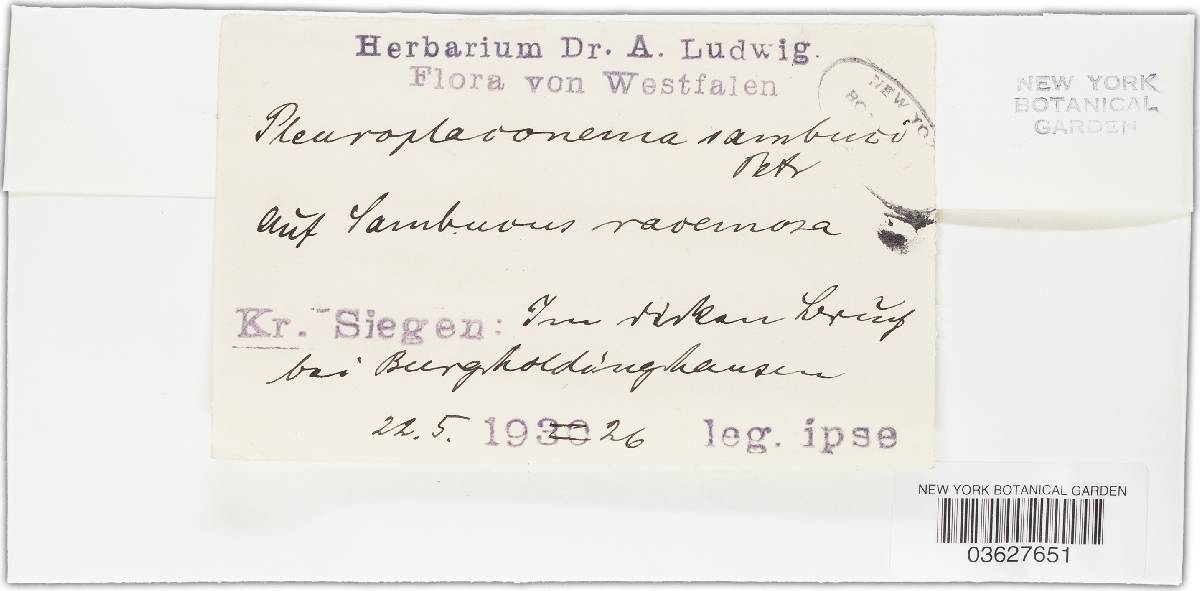 Herbarium Dr. A. Ludwig.
Flora von Westfalen
NEW YO
BO
NEW YORK
BOTANICAL
GARDEN
Pleuroplaconema sambuci
Petr
auf Sambucus racemosa
Kr. Siegen: Im dicken Bruch
bei Burgholdinghausen
22.5. 1930 26 leg. ipse
NEW YORK BOTANICAL GARDEN
03627651